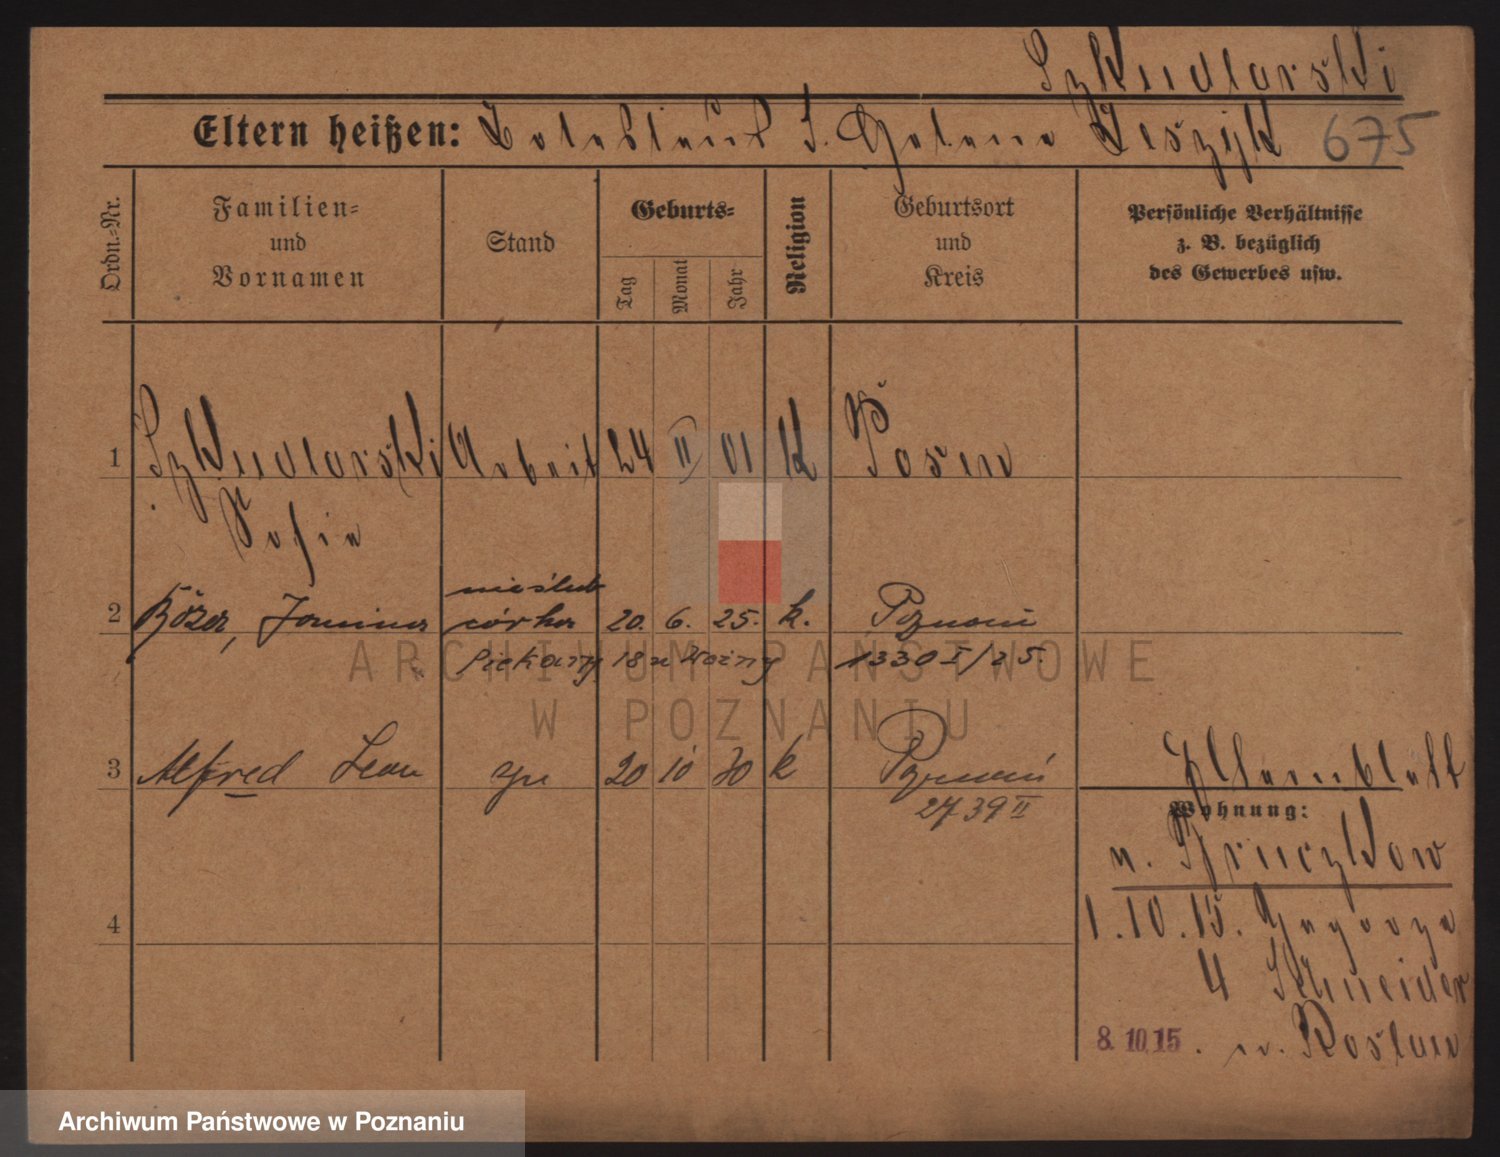 Szkudlarski
Eltern heißen: Leszyk 675
Ordn.-Nr.
Familien-
und
Vornamen
Stand
Geburts-
Tag
Monat
Jahr
Religion
Geburtsort
und
Kreis
Persönliche Verhältnisse
z. B. bezüglich
des Gewerbes usw.
1 Szkudlarski Arbeit 24 II 01 K Posen
Sofie
nieślub
2 Janina córka 20. 6. 25. k. Poznań
Piekary 18 u 1330 I/25.
3 Alfred Leon 20 10 30 k Poznań
2739 II
Wohnung:
n.
1.10.15.
4 Schneider
4
8.10.15. n.
ARCHIWUM PAŃSTWOWE
W POZNANIU
Archiwum Państwowe w Poznaniu